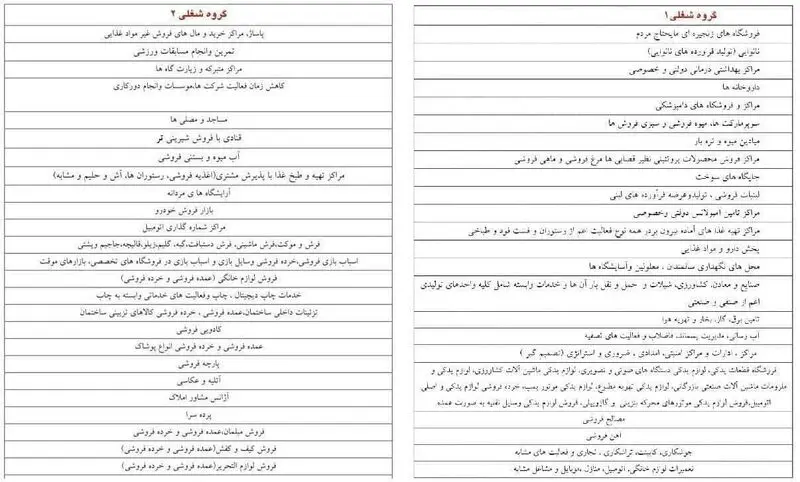 گروه شغلی ۱
فروشگاه های زنجیره ای مایحتاج مردم
نانوایی (تولید فرآورده های نانوایی)
مراکز بهداشتی درمانی دولتی و خصوصی
داروخانه ها
مراکز و فروشگاه های دامپزشکی
سوپرمارکت ها، میوه فروشی و سبزی فروش ها
میادین میوه و تره بار
مراکز فروش محصولات پروتئینی نظیر قصابی ها مرغ فروشی و ماهی فروشی
جایگاه های سوخت
لبنیات فروشی ، تولیدوعرضه فرآورده های لبنی
مراکز تامین آمبولانس دولتی وخصوصی
مراکز تهیه غذا های آماده بیرون بردر همه نوع فعالیت اعم از رستوران و فست فود و طباخی
پخش دارو و مواد غذایی
محل های نگهداری سالمندان ، معلولین وآسایشگاه ها
صنایع و معادن، کشاورزی، شیلات و حمل و نقل بار آن ها و خدمات وابسته شامل کلیه واحدهای تولیدی
اعم از صنفی و صنعتی
تامین برق، گاز، بخار و تهویه هوا
آب رسانی، مدیریت پسماند، فاضلاب و فعالیت های تصفیه
مراکز ، ادارات و مراکز امنیتی، امدادی ، ضروری و استراتژی (تصمیم گیر)
فروشگاه قطعات یدکی، لوازم یدکی دستگاه های صوتی و تصویری، لوازم یدکی ماشین آلات کشاورزی، لوازم یدکی و
ملزومات ماشین آلات صنعتی بازرگانی، لوازم یدکی تهویه مطبوع، لوازم یدکی موتور پمپ، خرده فروشی لوازم یدکی و اصلی
اتومبیل،فروش لوازم یدکی موتورهای محرکه بنزینی و گازوییلی، فروش لوازم یدکی وسایل نقلیه به صورت عمده
مصالح فروشی
آهن فروشی
جوشکاری، کابینت، تراشکاری ، نجاری و فعالیت های مشابه
تعمیرات لوازم خانگی، اتومبیل، منازل ،موبایل و مشاغل مشابه
گروه شغلی ۲
پاساژ، مراکز خرید و مال های فروش غیر مواد غذایی
تمرین وانجام مسابقات ورزشی
مراکز متبرکه و زیارت گاه ها
کاهش زمان فعالیت شرکت ها،موسسات وانجام دورکاری
مساجد و مصلی ها
قنادی با فروش شیرینی تر
آب میوه و بستنی فروشی
مراکز تهیه و طبخ غذا با پذیرش مشتری(اغذیه فروشی، رستوران ها، آش و حلیم و مشابه)
آرایشگاه ها ی مردانه
بازار فروش خودرو
مراکز شماره گذاری اتومبیل
فرش و موکت،فرش ماشینی، فرش دستبافت،گبه، گلیم،زیلو،قالیچه،جاجیم وپشتی
اسباب بازی فروشی،خرده فروشی وسایل بازی و اسباب بازی در فروشگاه های تخصصی، بازارهای موقت
فروش لوازم خانگی (عمده فروشی و خرده فروشی)
خدمات چاپ دیجیتال ، چاپ وفعالیت های خدماتی وابسته به چاپ
تزئینات داخلی ساختمان،عمده فروشی ، خرده فروشی کالاهای تزیینی ساختمان
کادویی فروشی
عمده فروشی و خرده فروشی انواع پوشاک
پارچه فروشی
آتلیه و عکاسی
آژانس مشاور املاک
پرده سرا
فروش مبلمان،عمده فروشی و خرده فروشی
فروش کیف و کفش(عمده فروشی و خرده فروشی)
فروش لوازم التحریر(عمده فروشی و خرده فروشی)